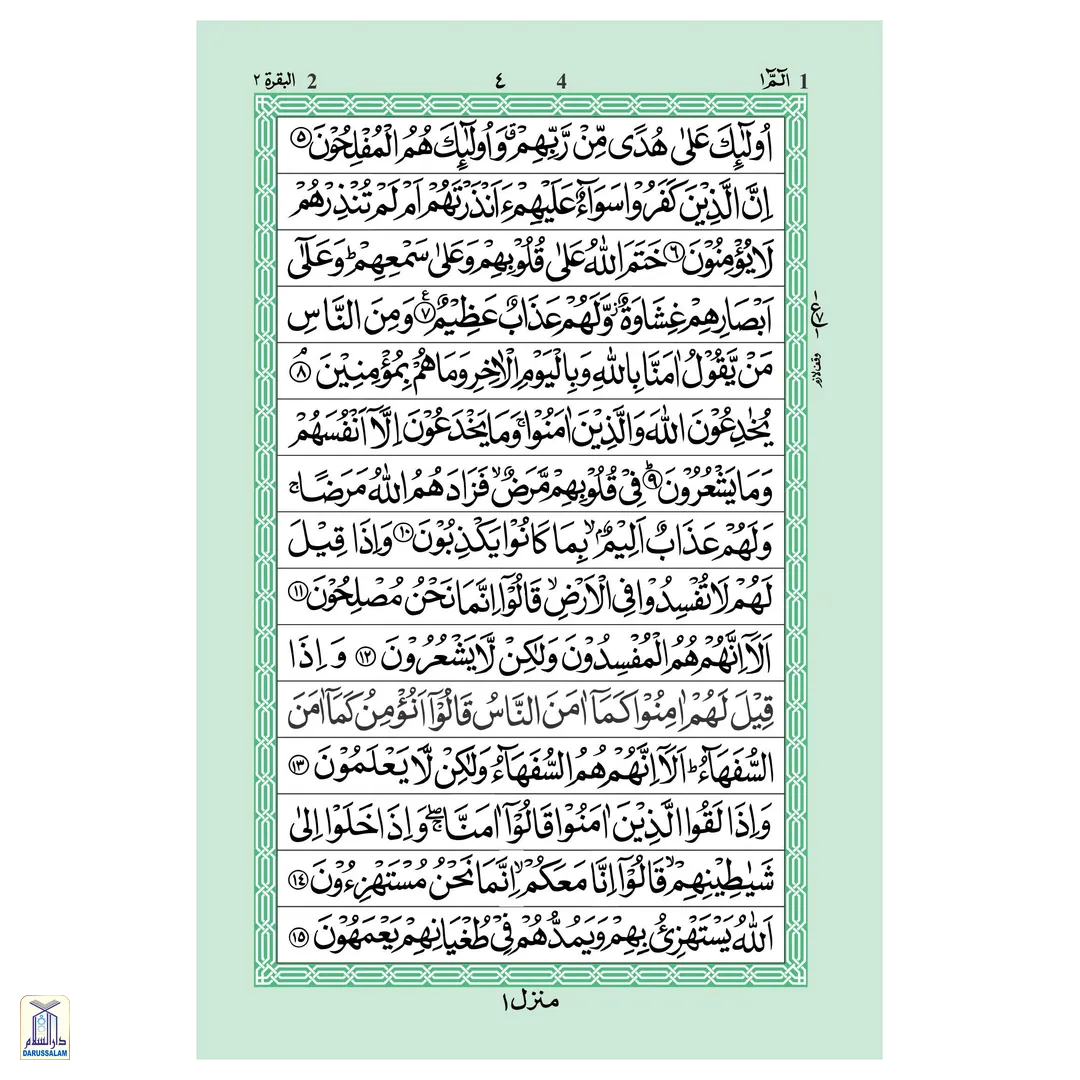 1 الٓـمّٓ ١ 4 ٤ 2 البقرة ٢
اُولٰٓئِكَ عَلٰى هُدًى مِّنْ رَّبِّهِمْ ۗ وَاُولٰٓئِكَ هُمُ الْمُفْلِحُوْنَ ۝٥
اِنَّ الَّذِيْنَ كَفَرُوْا سَوَآءٌ عَلَيْهِمْ ءَاَنْذَرْتَهُمْ اَمْ لَمْ تُنْذِرْهُمْ
لَا يُؤْمِنُوْنَ ۝٦ خَتَمَ اللّٰهُ عَلٰى قُلُوْبِهِمْ وَعَلٰى سَمْعِهِمْ ؕ وَعَلٰٓى
اَبْصَارِهِمْ غِشَاوَةٌ ۫ وَّلَهُمْ عَذَابٌ عَظِيْمٌ ۝٧ وَمِنَ النَّاسِ
ع
مَنْ يَّقُوْلُ اٰمَنَّا بِاللّٰهِ وَبِالْيَوْمِ الْاٰخِرِ وَمَا هُمْ بِمُؤْمِنِيْنَ ۝٨ۘ
وقف لازم
يُخٰدِعُوْنَ اللّٰهَ وَالَّذِيْنَ اٰمَنُوْا ۚ وَمَا يَخْدَعُوْنَ اِلَّآ اَنْفُسَهُمْ
وَمَا يَشْعُرُوْنَ ۝٩ؕ فِيْ قُلُوْبِهِمْ مَّرَضٌ ۙ فَزَادَهُمُ اللّٰهُ مَرَضًا ۚ
وَلَهُمْ عَذَابٌ اَلِيْمٌۢ ۙ بِمَا كَانُوْا يَكْذِبُوْنَ ۝١٠ وَاِذَا قِيْلَ
لَهُمْ لَا تُفْسِدُوْا فِي الْاَرْضِ ۙ قَالُوْٓا اِنَّمَا نَحْنُ مُصْلِحُوْنَ ۝١١
اَلَآ اِنَّهُمْ هُمُ الْمُفْسِدُوْنَ وَلٰكِنْ لَّا يَشْعُرُوْنَ ۝١٢ وَاِذَا
قِيْلَ لَهُمْ اٰمِنُوْا كَمَآ اٰمَنَ النَّاسُ قَالُوْٓا اَنُؤْمِنُ كَمَآ اٰمَنَ
السُّفَهَآءُ ؕ اَلَآ اِنَّهُمْ هُمُ السُّفَهَآءُ وَلٰكِنْ لَّا يَعْلَمُوْنَ ۝١٣
وَاِذَا لَقُوا الَّذِيْنَ اٰمَنُوْا قَالُوْٓا اٰمَنَّا ۖۚ وَاِذَا خَلَوْا اِلٰى
شَيٰطِيْنِهِمْ ۙ قَالُوْٓا اِنَّا مَعَكُمْ ۙ اِنَّمَا نَحْنُ مُسْتَهْزِءُوْنَ ۝١٤
اَللّٰهُ يَسْتَهْزِئُ بِهِمْ وَيَمُدُّهُمْ فِيْ طُغْيَانِهِمْ يَعْمَهُوْنَ ۝١٥
منزل ١
دارالسلام
DARUSSALAM